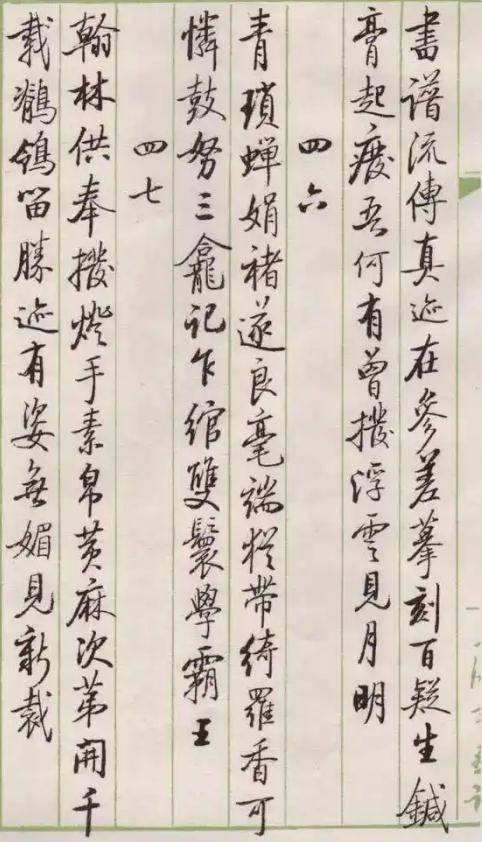 書譜流傳真迹在參差摹刻百疑生鍼
膏起癈吾何有曾撥浮雲見月明
四六
青瑣蟬娟褚遂良毫端猶帶綺羅香可
憐鼓努三龕記乍綰雙鬟學霸王
四七
翰林供奉撥燈手素帛黃麻次苐開千
載鶺鴒留勝迹有姿無媚見新裁